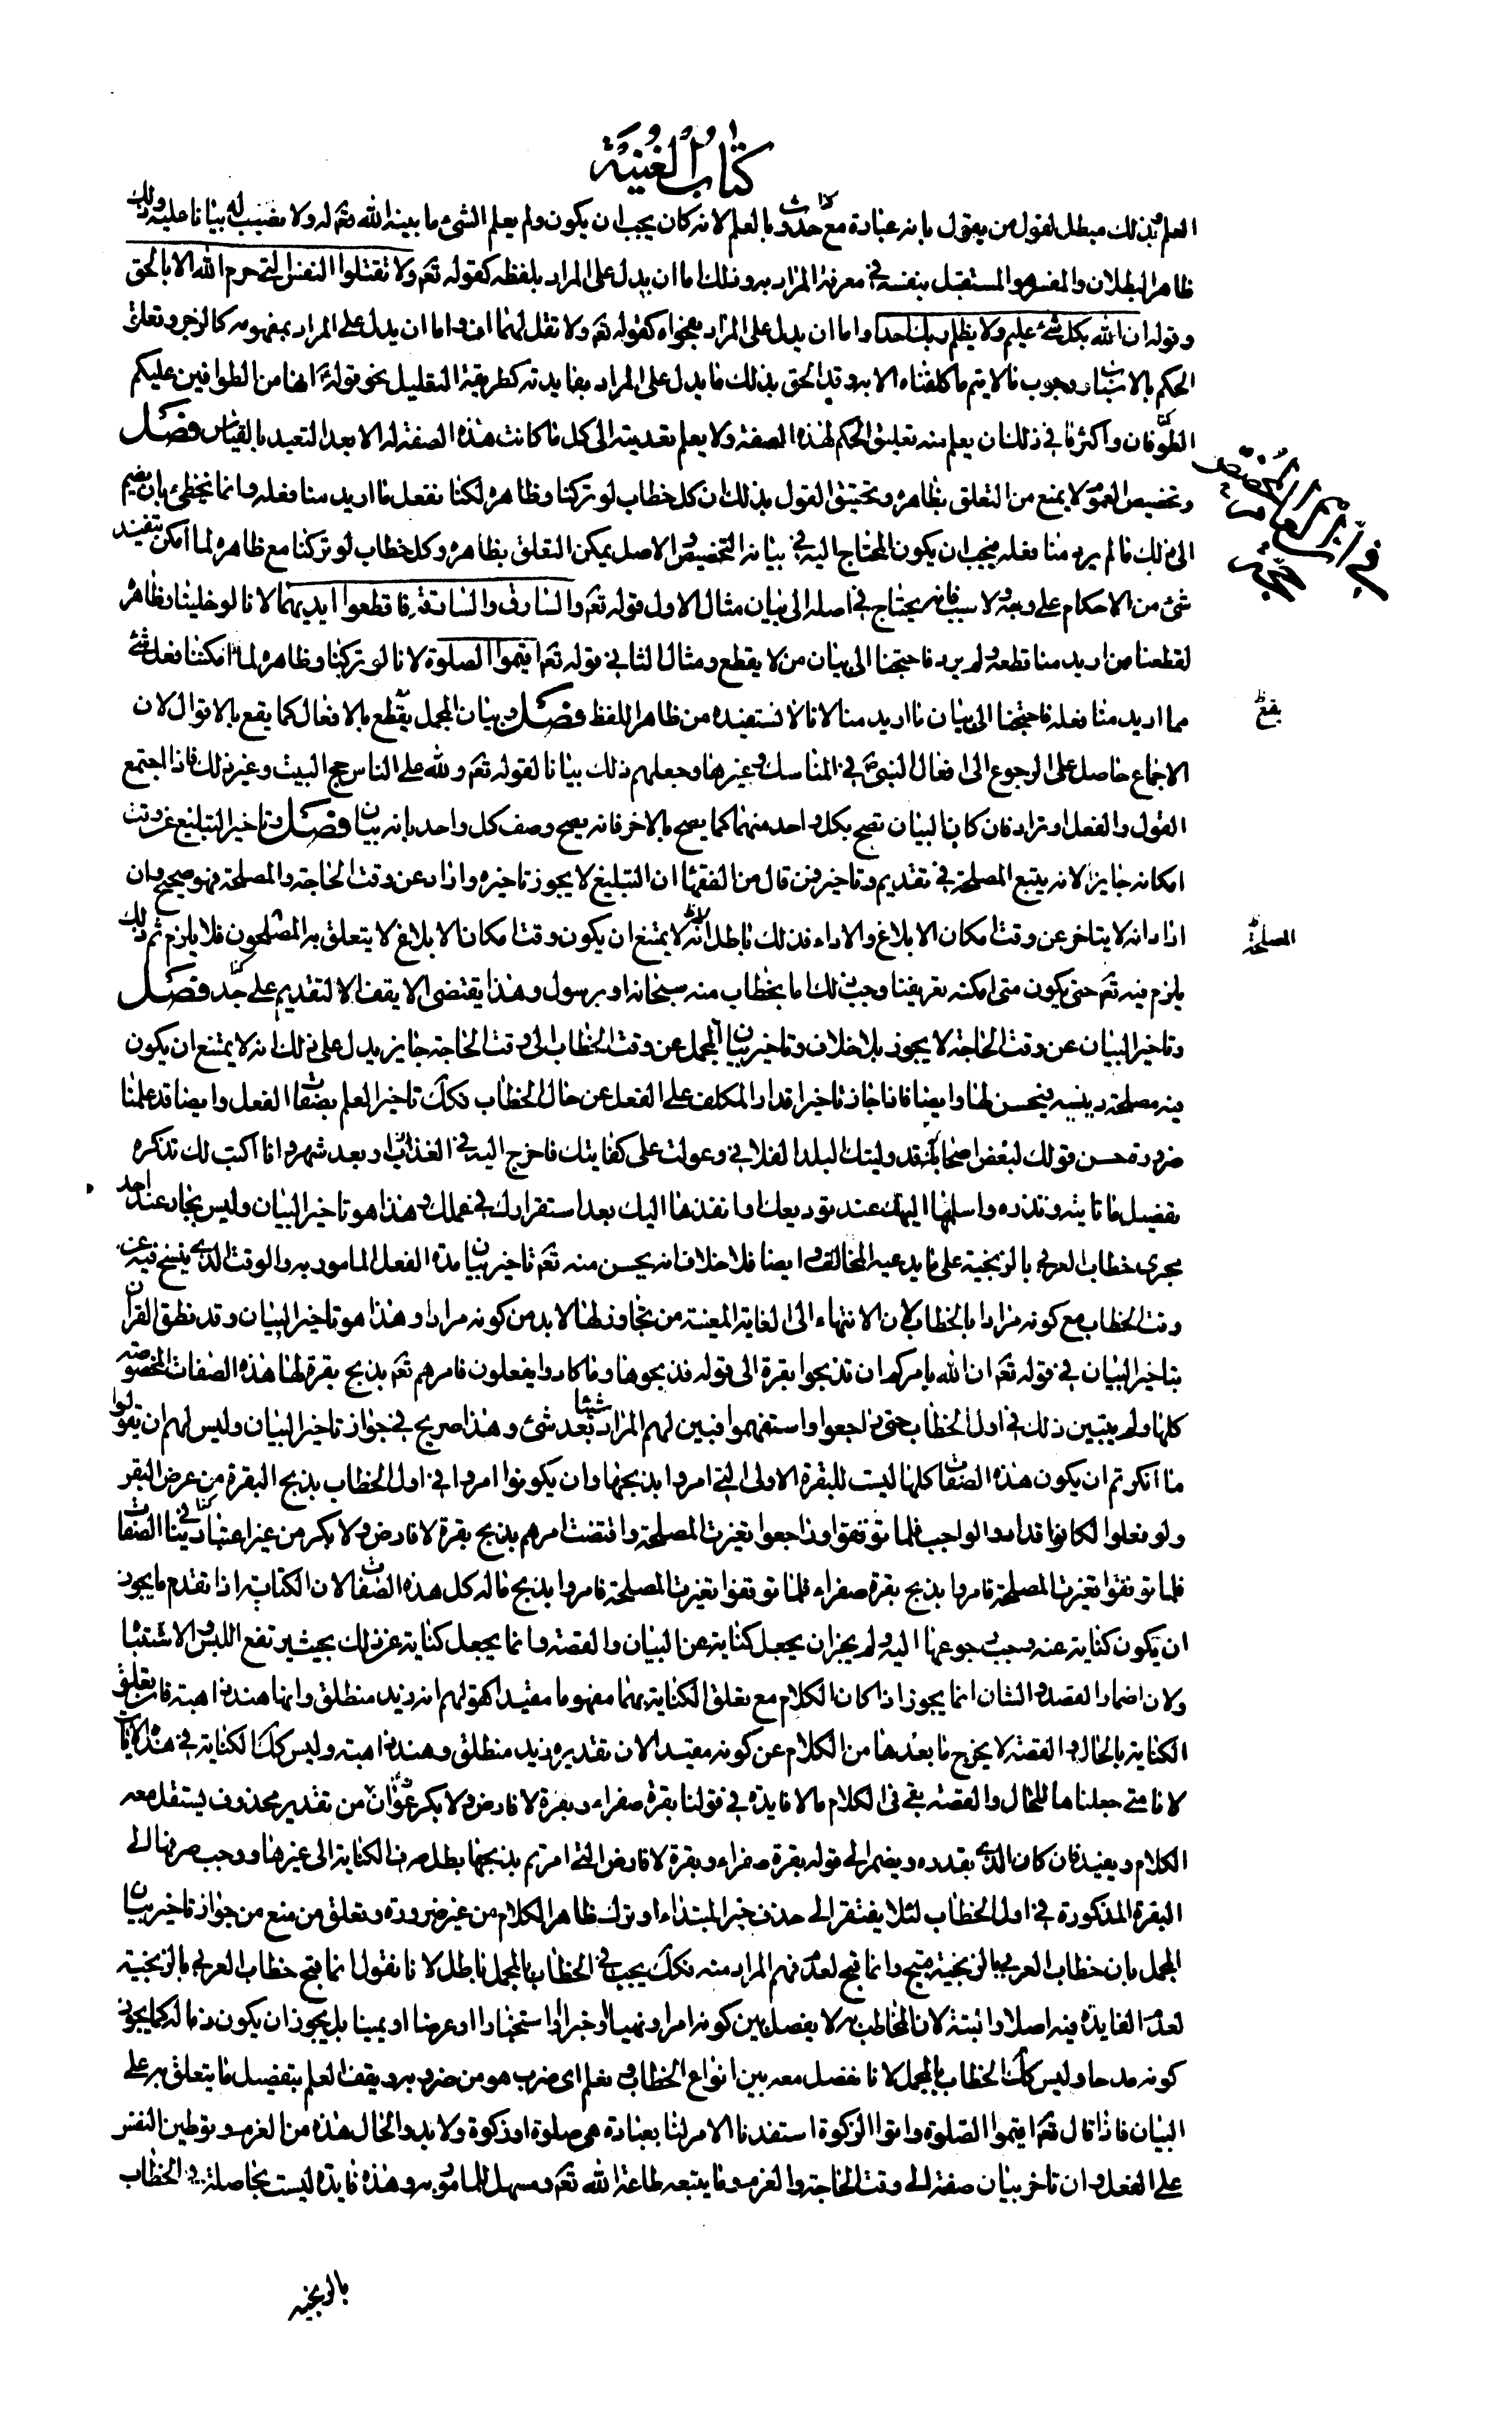 كتاب الغنية
العلم بذلك مبطل لقول من يقول بانه عبادة مع حدوث العلم لانه كان يجب ان يكون ولم يعلم الشئ ما بينه الله تعم له ولا نصب له بيانا عليه وذلك
ظاهر البطلان والمفسر هو المستقبل بنفسه في معرفة المراد به وذلك اما ان يدل على المراد بلفظه كقوله تعم ولا تقتلوا النفس التي حرم الله الا بالحق
وقوله ان الله بكل شئ عليم ولا يظلم ربك احدا واما ان يدل على المراد بفحواه كقوله تعم ولا تقل لهما اف واما ان يدل على المراد بمفهومه كالزجر وتعلق
الحكم بالاسباب ووجوب ما لا يتم ما كلفناه الا به وقد الحق بذلك ما يدل على المراد بفايدته كطريقة التعليل نحو قوله انها من الطوافين عليكم
الطوافات واكثر ما في ذلك ان يعلم منه تعليق الحكم لهذه الصفة ولا يعلم تعديته الى كل ما كانت هذه الصفة له الا بعد التعبد بالقياس فصل
وتخصيص العموم لا يمنع من التعلق بظاهره وتحقيق القول بذلك ان كل خطاب لو تركنا وظاهره لكنا نفعل ما اريد منا فعله وانما نخطئ بان نضم
الى ذلك ما لم يرد منا فعله فيجب ان يكون المحتاج اليه في بيانه التخصيص والاصل يمكن التعلق بظاهره وكل خطاب لو تركنا مع ظاهره لما امكن تنفيذ
شئ من الاحكام على وجه ولا سبب فانه يحتاج في اصله الى بيان مثال الاول قوله تعم والسارق والسارقة فاقطعوا ايديهما لانا لو خلينا وظاهره
لقطعنا من اريد منا قطعه ولم يرد فاحتجنا الى بيان من لا يقطع ومثال الثاني قوله تعم اقيموا الصلوة لانا لو تركنا وظاهره لما امكننا فعل شئ
مما اريد منا فعله فاحتجنا الى بيان ما اريد منا لانا لا نستفيده من ظاهر اللفظ فصل وبيان المجمل يقطع بالافعال كما يقع بالاقوال لان
الاجماع حاصل على الرجوع الى افعال النبي في المناسك وغيرها وجعلهم ذلك بيانا لقوله تعم ولله على الناس حج البيت وغير ذلك فاذا اجتمع
القول والفعل وترادفا فان كان البيان تصح بكل واحد منهما كما يصح بالاخر فانه يصح وصف كل واحد بانه بيان فصل وتاخير التبليغ عن وقت
امكانه جايز لانه يتبع المصلحة في تقديم وتاخير فمن قال من الفقها ان التبليغ لا يجوز تاخيره واراد عن وقت الحاجة والمصلحة فهو صحيح وان
اراد انه لا يتاخر عن وقت امكان الابلاغ والاداء فذلك باطل لانه لا يمتنع ان يكون وقت امكان الابلاغ لا يتعلق به المصلحة فلا يلزم ثم ذلك
يلزم فيه تعم حتى يكون متى امكنه تعريفنا وجب ذلك اما بخطاب منه سبحانه او برسول وهذا يقتضي الا يقف التقديم على حد فصل
وتاخير البيان عن وقت الحاجة لا يجوز بلا خلاف وتاخير بيان المجمل عن وقت الخطاب الى وقت الحاجة جايز يدل على ذلك انه لا يمتنع ان يكون
فيه مصلحة دينية فيحسن لها وايضا فاذا جاز تاخير اقدار المكلف على الفعل عن حال الخطاب فكك تاخير العلم بصفات الفعل وايضا قد علمنا
ضرورة حسن قولك لبعض اصحابك قد وليتك البلد الفلاني وعولت على كفايتك فاخرج اليه في الغد او بعد شهر وانا اكتب لك تذكره
بتفصيل ما تاتيه وتذره واسلمها اليك عند توديعك او انفذها اليك بعد استقرارك في عملك وهذا هو تاخير البيان وليس بجار عند احد
مجرى خطاب العربي بالزنجية على ما يدعيه المخالف وايضا فلا خلاف انه يحسن منه تعم تاخير بيان مدة الفعل المامور به والوقت الذي ينسخ فيه عن
وقت الخطاب مع كونه مرادا بالخطاب لان الانتهاء الى الغاية المعينة من تجاوزها لابد من كونه مرادا وهذا هو تاخير البيان وقد نطق القران
بتاخير البيان في قوله تعم ان الله يامركم ان تذبحوا بقرة الى قوله فذبحوها وما كادوا يفعلون فامرهم تعم بذبح بقرة لها هذه الصفات المخصوصة
كلها ولم يتبين ذلك في اول الخطاب حتى راجعوا واستفهموا فبين لهم المراد شيئا بعد شئ وهذا صريح في جواز تاخير البيان وليس لهم ان يقولوا
ما انكرتم ان يكون هذه الصفات كلها ليست للبقرة الاولى التي امروا بذبحها وان يكونوا امروا في اول الخطاب بذبح البقرة من عرض البقر
ولو فعلوا لكانوا قد ادوا الواجب فلما توقفوا وراجعوا تغيرت المصلحة واقتضت امرهم بذبح بقرة لا فارض ولا بكر من غير اعتبار في باقي الصفات
فلما توقفوا تغيرت المصلحة فامروا بذبح بقرة صفراء فلما توقفوا تغيرت المصلحة فامروا بذبح ماله كل هذه الصفات لان الكناية اذا تقدم ما يجوز
ان يكون كناية عنه وجب رجوعها اليه ولم يجز ان يجعل كناية عن البيان والقصة وانما يجعل كناية عن ذلك بحيث يرتفع اللبس والاشتباه
ولان اضمار القصة والشان انما يجوز اذا كان الكلام مع تعلق الكناية بهما مفهوما مفيدا كقولهم انه زيد منطلق وانها هند ذاهبة فان تعليق
الكناية بالحال والقصة لا يخرج ما بعدها من الكلام عن كونه مفيدا لان تقديره زيد منطلق وهند ذاهبة وليس كك الكناية في هذه الاية
لانا متى جعلناها للحال والقصة بقى في الكلام ما لا فايدة في قولنا بقرة صفراء وبقرة لا فارض ولا بكر عوان من تقدير محذوف يستقل معه
الكلام ويفيد فان كان الذي يقدره ويضم الى قوله بقرة صفراء وبقرة لا فارض التي امرتم بذبحها بطل صرف الكناية الى غيرها ووجب صرفها الى
البقرة المذكورة في اول الخطاب لئلا يفتقر الى حذف خبر المبتداء او ترك ظاهر الكلام من غير ضرورة وتعلق من منع من جواز تاخير بيان
المجمل بان خطاب العربي بالزنجية قبيح وانما قبح لعدم فهم المراد منه فكك يجب في الخطاب بالمجمل باطل لانا نقول انما قبح خطاب العربي بالزنجية
لعدم الفايدة فيه اصلا والبتة لان المخاطب به لا يفصل بين كونه امرا ونهيا او خبرا او استخبارا او عرضا او يمينا بل يجوز ان يكون ذما له كما يجوز
كونه مدحا وليس كك الخطاب بالمجمل لانا نفصل معه بين انواع الخطاب ونعلم اي ضرب هو من ضروبه ويقف العلم بتفصيل ما يتعلق به على
البيان فاذا قال تعم اقيموا الصلوة واتوا الزكوة استفدنا الامر لنا بعبادة هي صلوة او زكوة ولابد والحال هذه من العزم وتوطين النفس
على الفعل وان تاخر بيان صفته الى وقت الحاجة والعزم وما يتبعه طاعة الله تعم ومسهل للمامور به وهذه فايدة ليست بحاصلة في الخطاب
بالزنجية
يقع
المصلحة